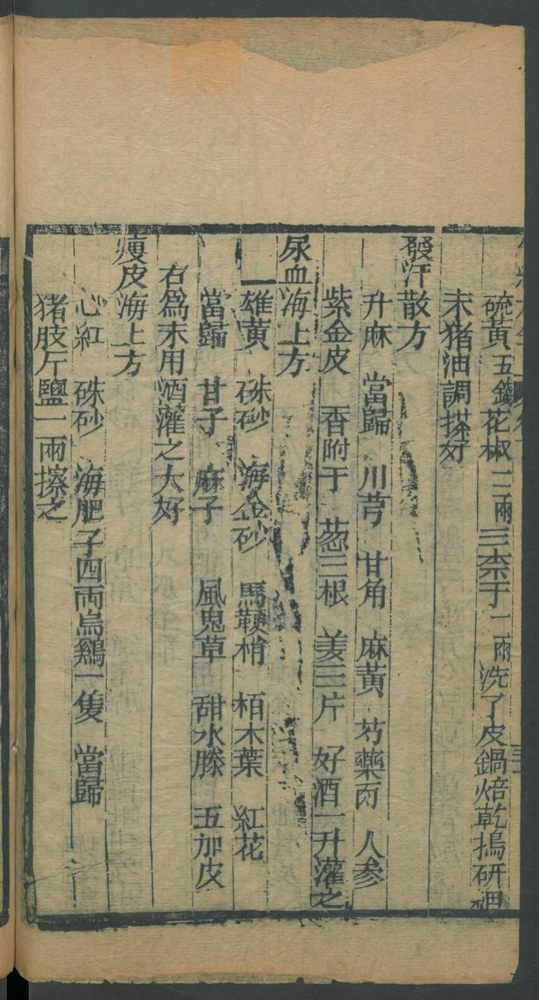 硫黄五錢花椒二兩三柰子一兩洗了皮鍋焙乾搗研
末猪油調搽好
發汗散方
升麻 當歸 川芎 甘角 麻黄 芍藥 人参
紫金皮 香附子 葱三根 姜三片 好酒一升灌之
尿血海上方
雄黄 硃砂 海金砂 馬鞭梢 栢木葉 紅花
當歸 甘子 麻子 風鬼草 甜水滕 五加皮
右為末用酒灌之大好
瘦皮海上方
心紅 硃砂 海肥子四兩烏鷄一隻 當歸
猪肢斤鹽一兩擦之